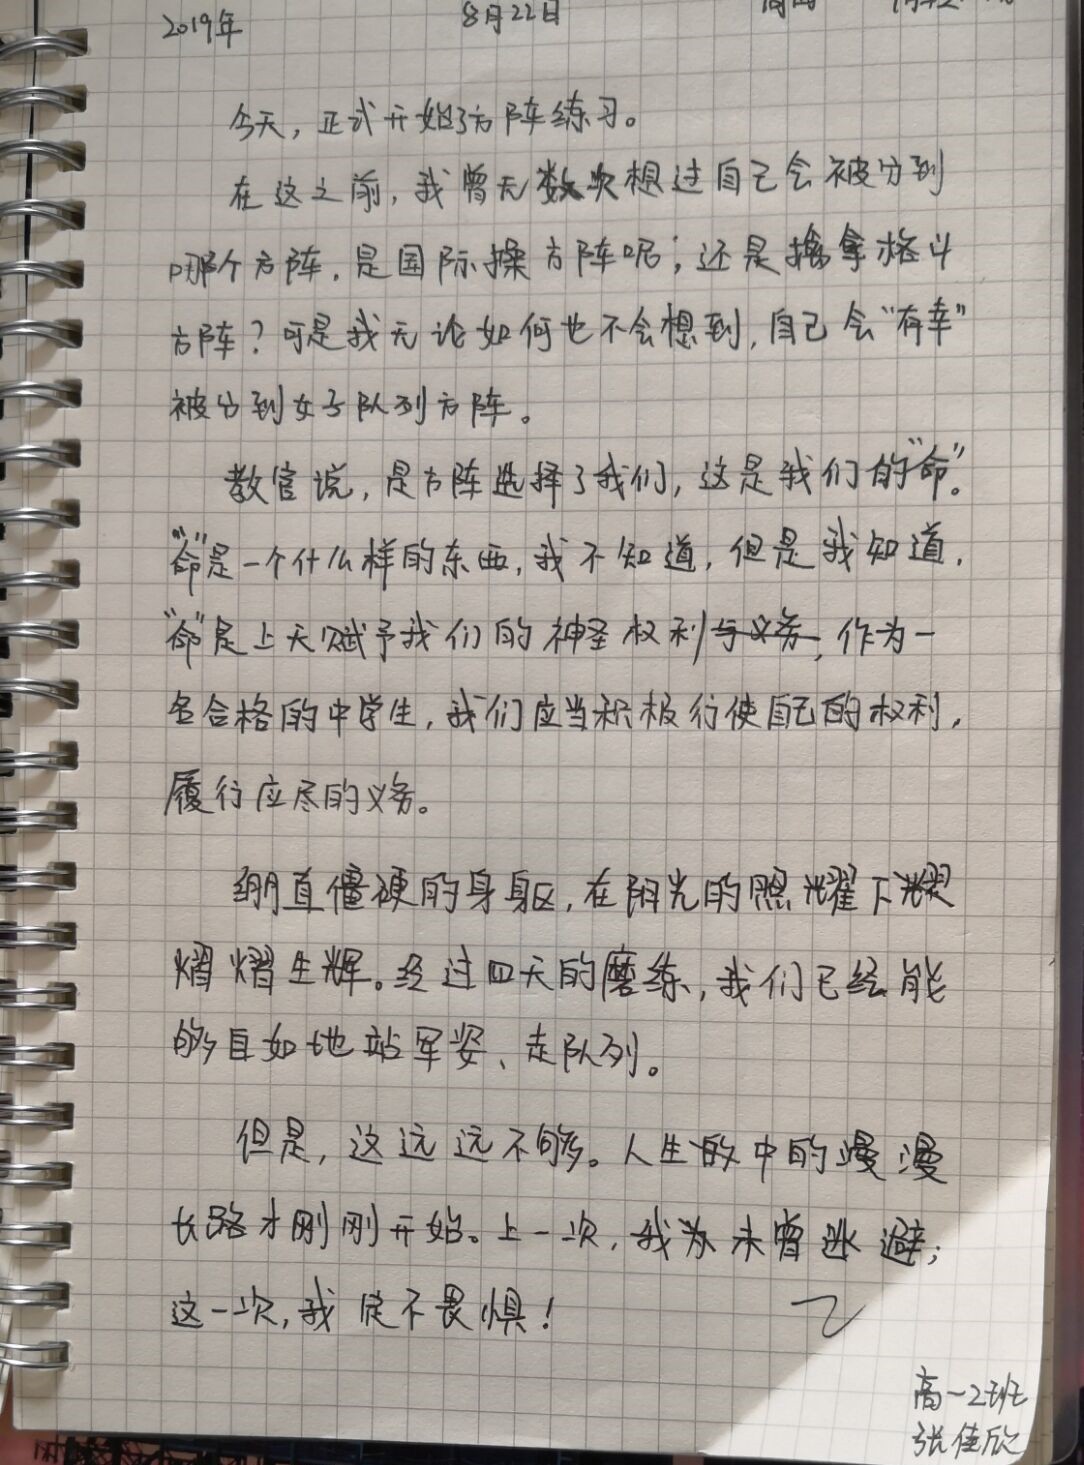 2019年 8月22日
今天，正式开始了方阵练习。
在这之前，我曾无数次想过自己会被分到
哪个方阵，是国际操方阵呢；还是擒拿格斗
方阵？可是我无论如何也不会想到，自己会“有幸”
被分到女子队列方阵。
教官说，是方阵选择了我们，这是我们的“命”。
“命”是一个什么样的东西，我不知道，但是我知道，
“命”是上天赋予我们的神圣权利与义务，作为一
名合格的中学生，我们应当积极行使自己的权利，
履行应尽的义务。
绷直僵硬的身躯，在阳光的照耀下
熠熠生辉。经过四天的磨练，我们已经能
够自如地站军姿、走队列。
但是，这远远不够。人生的中的漫漫
长路才刚刚开始。上一次，我未曾逃避；
这一次，我绝不畏惧！
高一2班
张佳欣